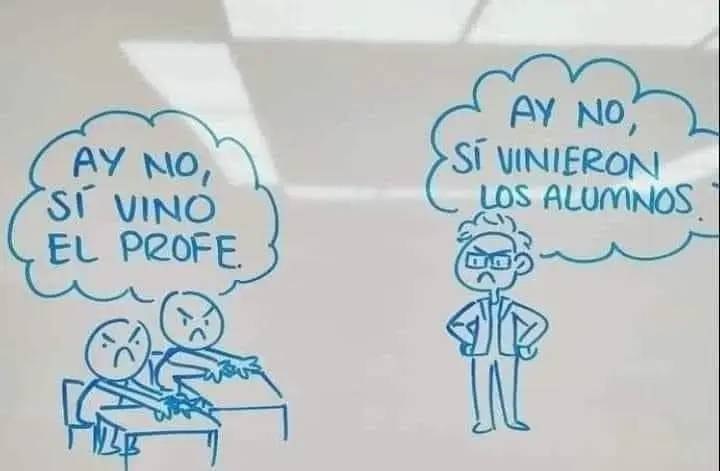 AY NO,
SÍ VINO
EL PROFE.
AY NO,
SÍ VINIERON
LOS ALUMNOS.